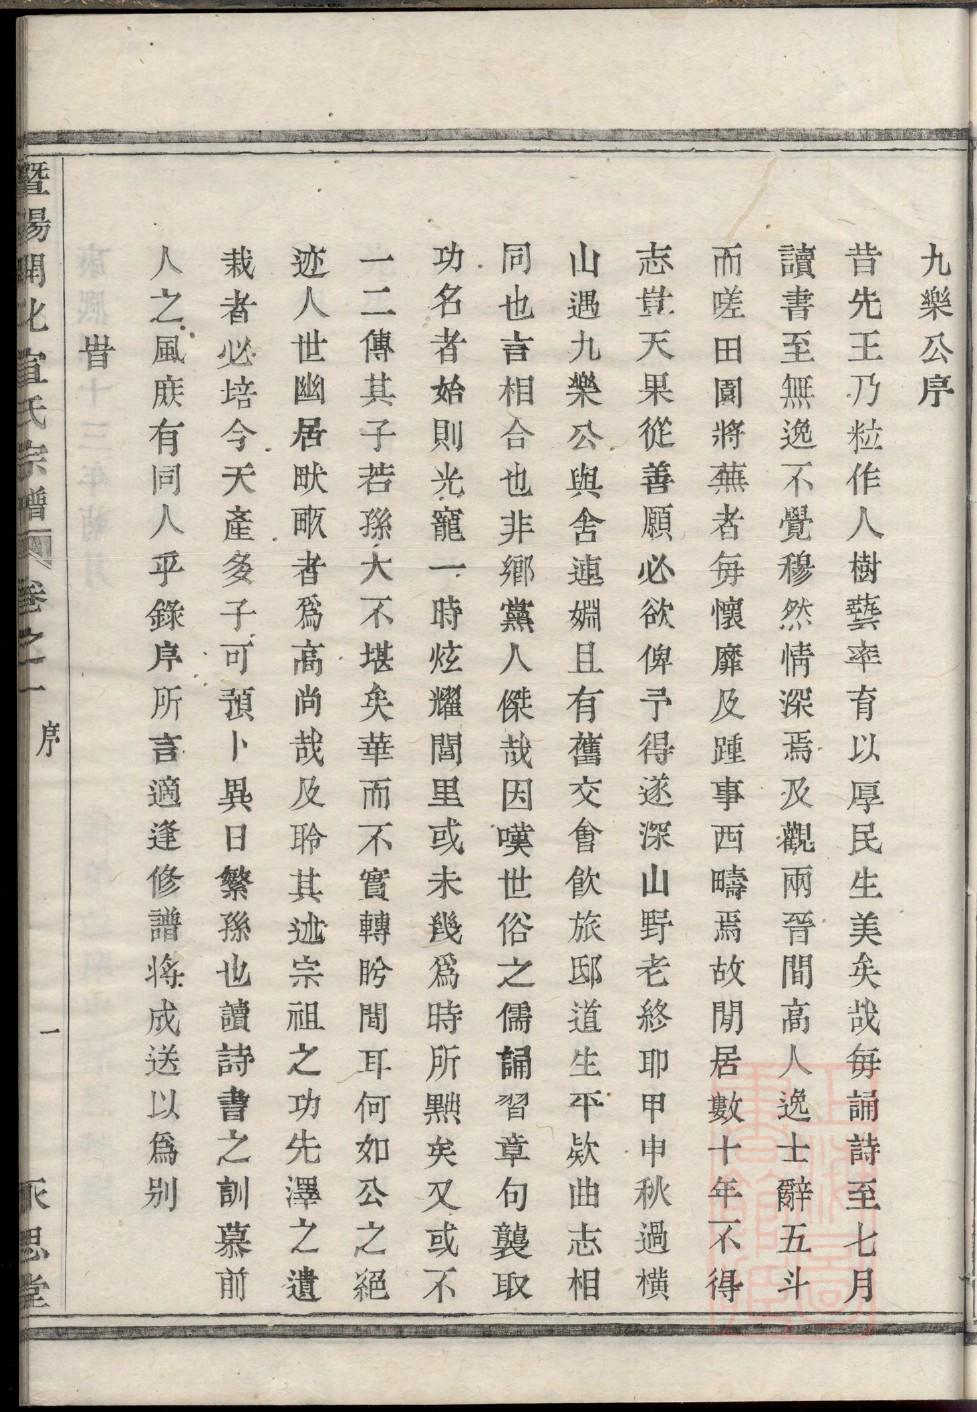 九樂公序
昔先王乃粒作人樹藝率育以厚民生美矣哉每誦詩至七月
讀書至無逸不覺穆然情深焉及觀兩晉間高人逸士辭五斗
而嗟田園將蕪者每懷靡及踵事西疇焉故閒居數十年不得
志豈天果從善願必欲俾予得遂深山野老終耶甲申秋過橫
山遇九樂公與舍連姻且有舊交會飲旅邸道生平欵曲志相
同也言相合也非鄉黨人傑哉因嘆世俗之儒誦習章句襲取
功名者始則光寵一時炫耀閭里或未幾爲時所黜矣又或不
一二傳其子若孫大不堪矣華而不實轉盼間耳何如公之絕
迹人世幽居畎畝者爲高尚哉及聆其述宗祖之功先澤之遺
栽者必培今天產多子可預卜異日繁孫也讀詩書之訓慕前
人之風庶有同人乎錄序所言適逢修譜將成送以爲別
旹
暨陽開化宣氏宗譜 卷之一 序 一 永思堂